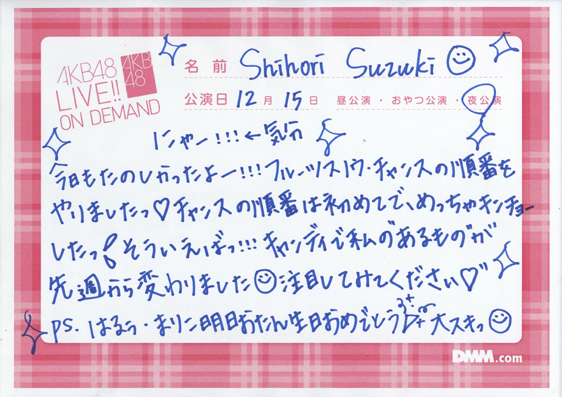 AKB48
LIVE!!
ON DEMAND
AKB
48
名前 Shihori Suzuki
公演日 12月 15日 昼公演・おやつ公演・夜公演
にゃー!!!←気分
今日もたのしかったよー!!!フルーツスノウ・チャンスの順番を
やりましたっ♡チャンスの順番は初めてで、めっちゃキンチョー
したっ!そういえばっ!!!キャンディで私の"あるもの"が
先週から変わりました☺注目してみてください♡"
P.S. はるぅ・まりこ明日おたん生日おめでとう 大スキっ☺
DMM.com